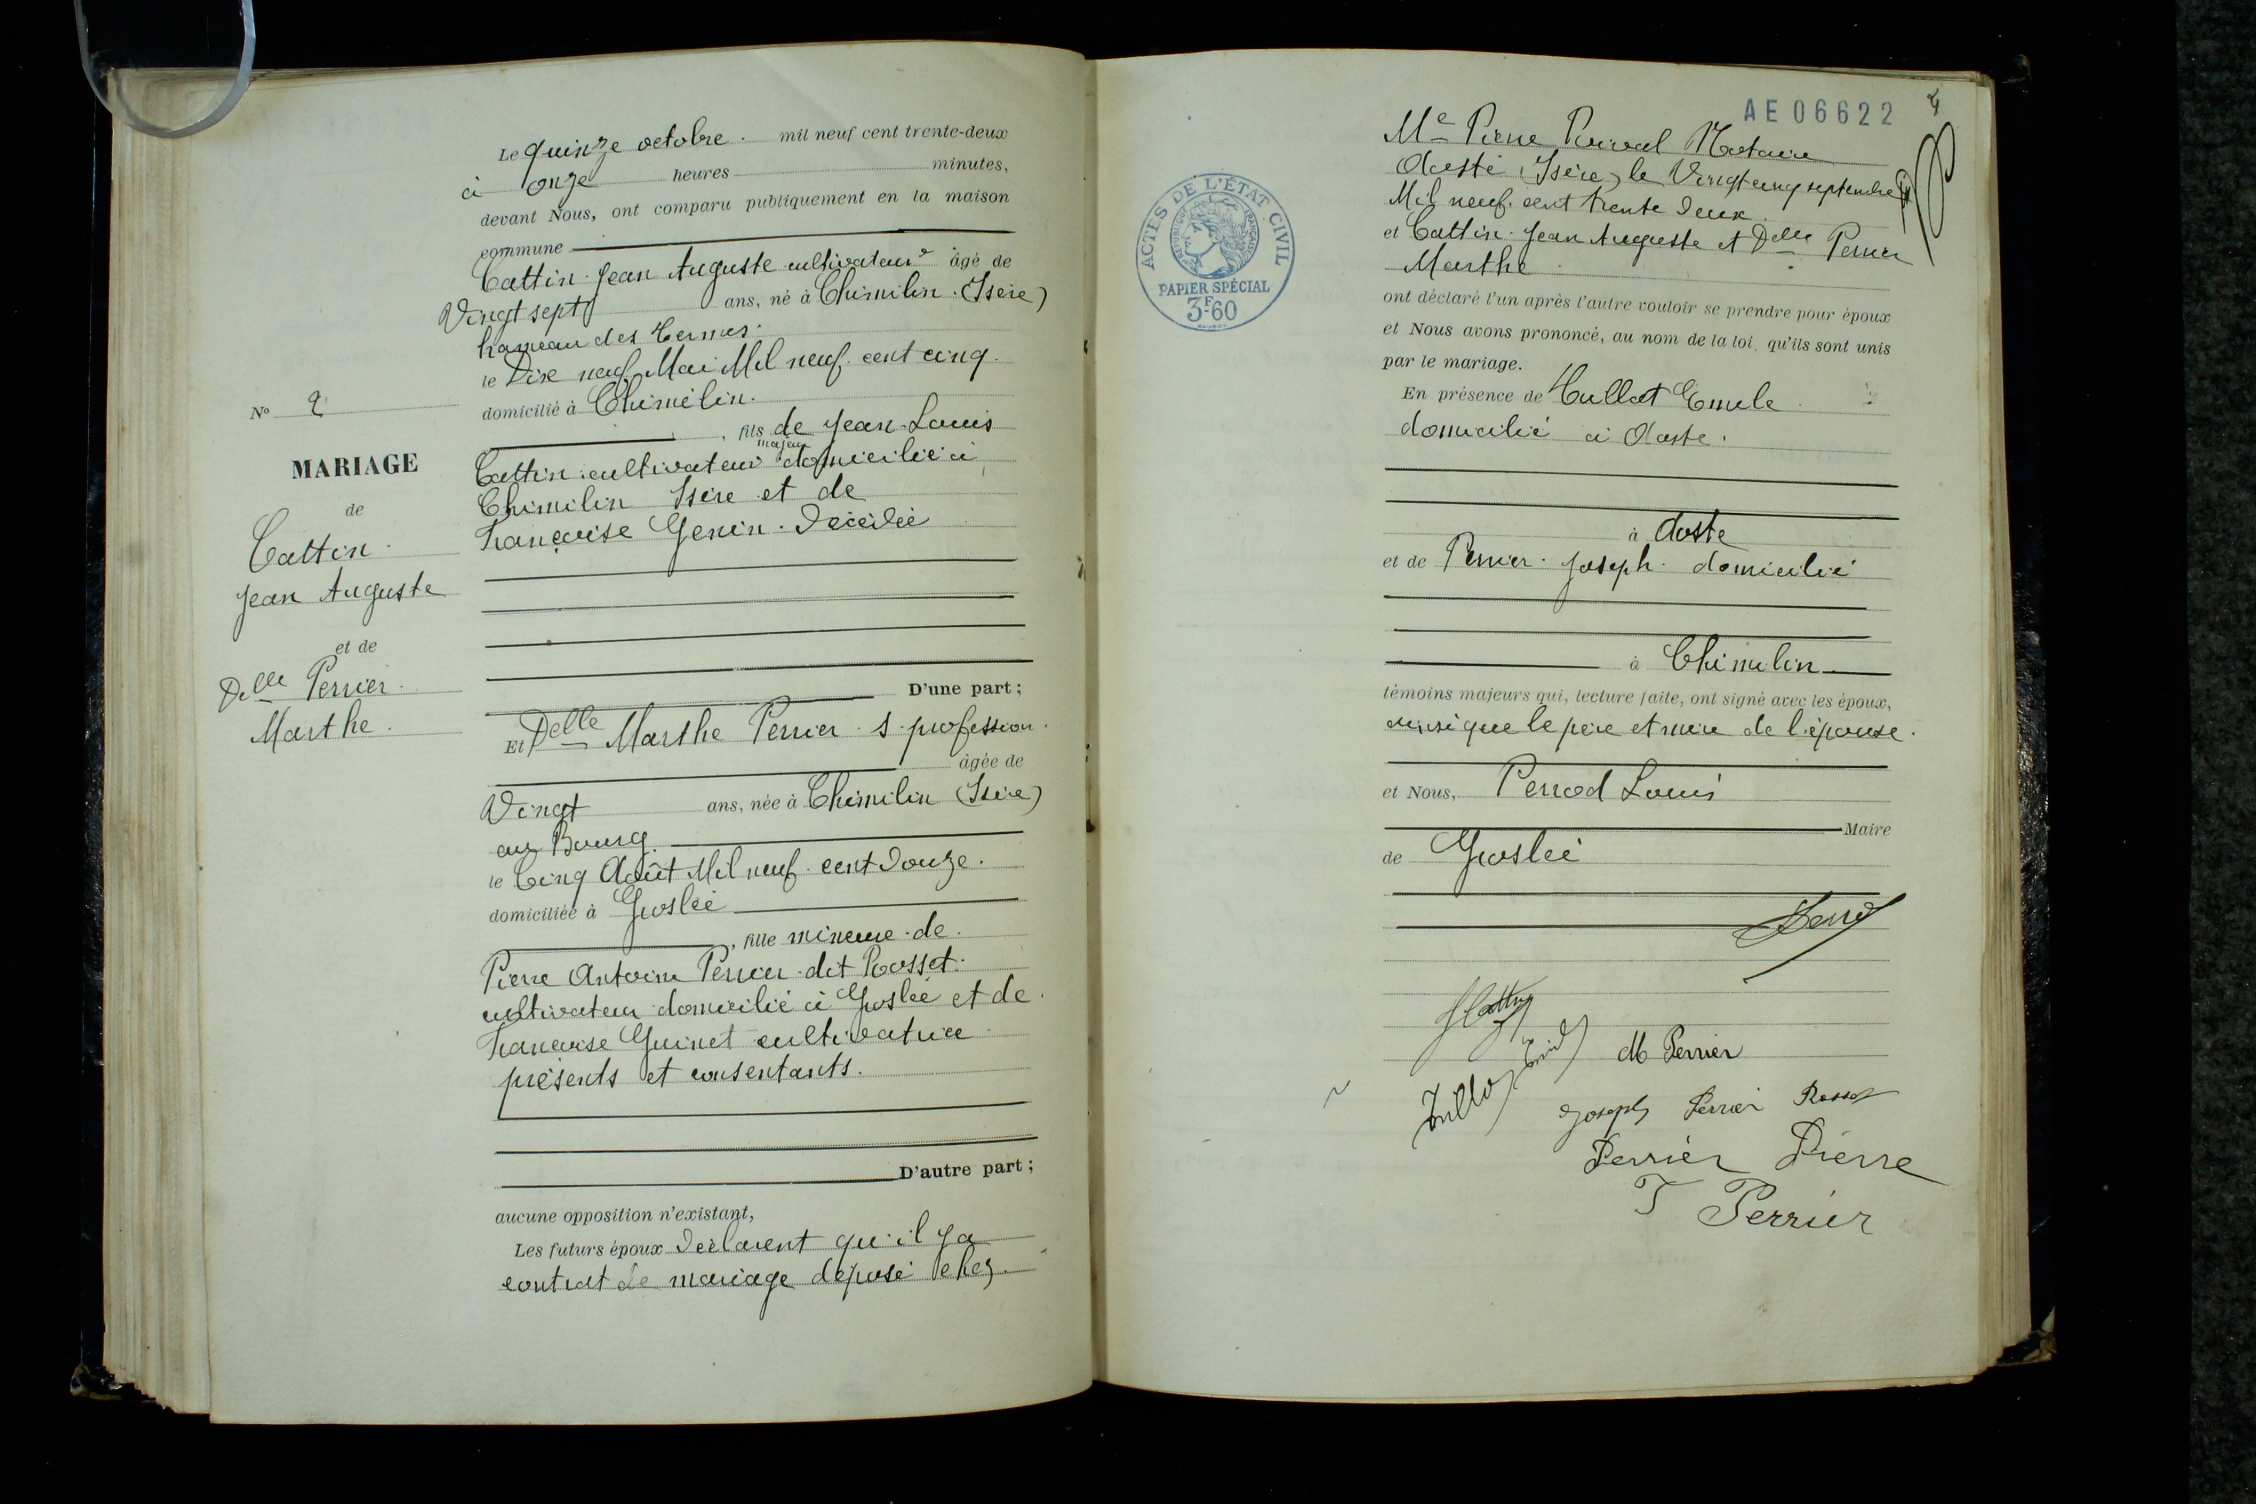 Le quinze octobre. mil neuf cent trente-deux
à onze heures minutes,
devant Nous, ont comparu publiquement en la maison
commune
Cattin Jean Auguste cultivateur âgé de
Vingt sept ans, né à Chimilin (Isère)
hameau des Ternes.
le Dix neuf Mai Mil neuf cent cinq.
domicilié à Chimilin.
, fils de Jean-Louis
majeur
Cattin cultivateur domicilié à
Chimilin Isère et de
Françoise Genin. Décédée
D'une part ;
Et Delle Marthe Perrier. s. profession.
âgée de
Vingt ans, née à Chimilin (Isère)
au Bourg.
le Cinq Août Mil neuf cent douze.
domiciliée à Groslée
, fille mineure de
Pierre Antoine Perrier dit Rosset.
cultivateur domicilié à Groslée et de
Françoise Guinet cultivatrice
présents et consentants.
D'autre part ;
aucune opposition n'existant,
Les futurs époux déclarent qu'il y a
contrat de mariage déposé chez
No 2
MARIAGE
de
Cattin.
Jean Auguste
et de
Delle Perrier.
Marthe.
AE 06622
4
Me Pierre Notaire
Aoste (Isère) le Vingt cinq septembre
Mil neuf cent trente deux.
et Cattin Jean Auguste et Delle Perrier
Marthe
ont déclaré l'un après l'autre vouloir se prendre pour époux
et Nous avons prononcé, au nom de la loi, qu'ils sont unis
par le mariage.
En présence de Tullot Emile
domicilié à Aoste.
à Aoste
et de Perrier Joseph domicilié
à Chimilin
témoins majeurs qui, lecture faite, ont signé avec les époux,
ainsi que le père et mère de l'épouse.
et Nous, Perrod Louis
Maire
de Groslée
Perrod
J Cattin
M Perrier
Tullot Emile
Joseph Perrier Rosset
Perrier Pierre
F Perrier
ACTES DE L'ÉTAT CIVIL
RÉPUBLIQUE FRANÇAISE
PAPIER SPÉCIAL
3F.60